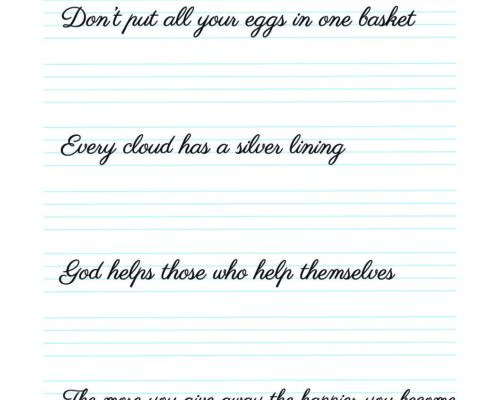 Don't put all your eggs in one basket
Every cloud has a silver lining
God helps those who help themselves
The more you give away the happier you become